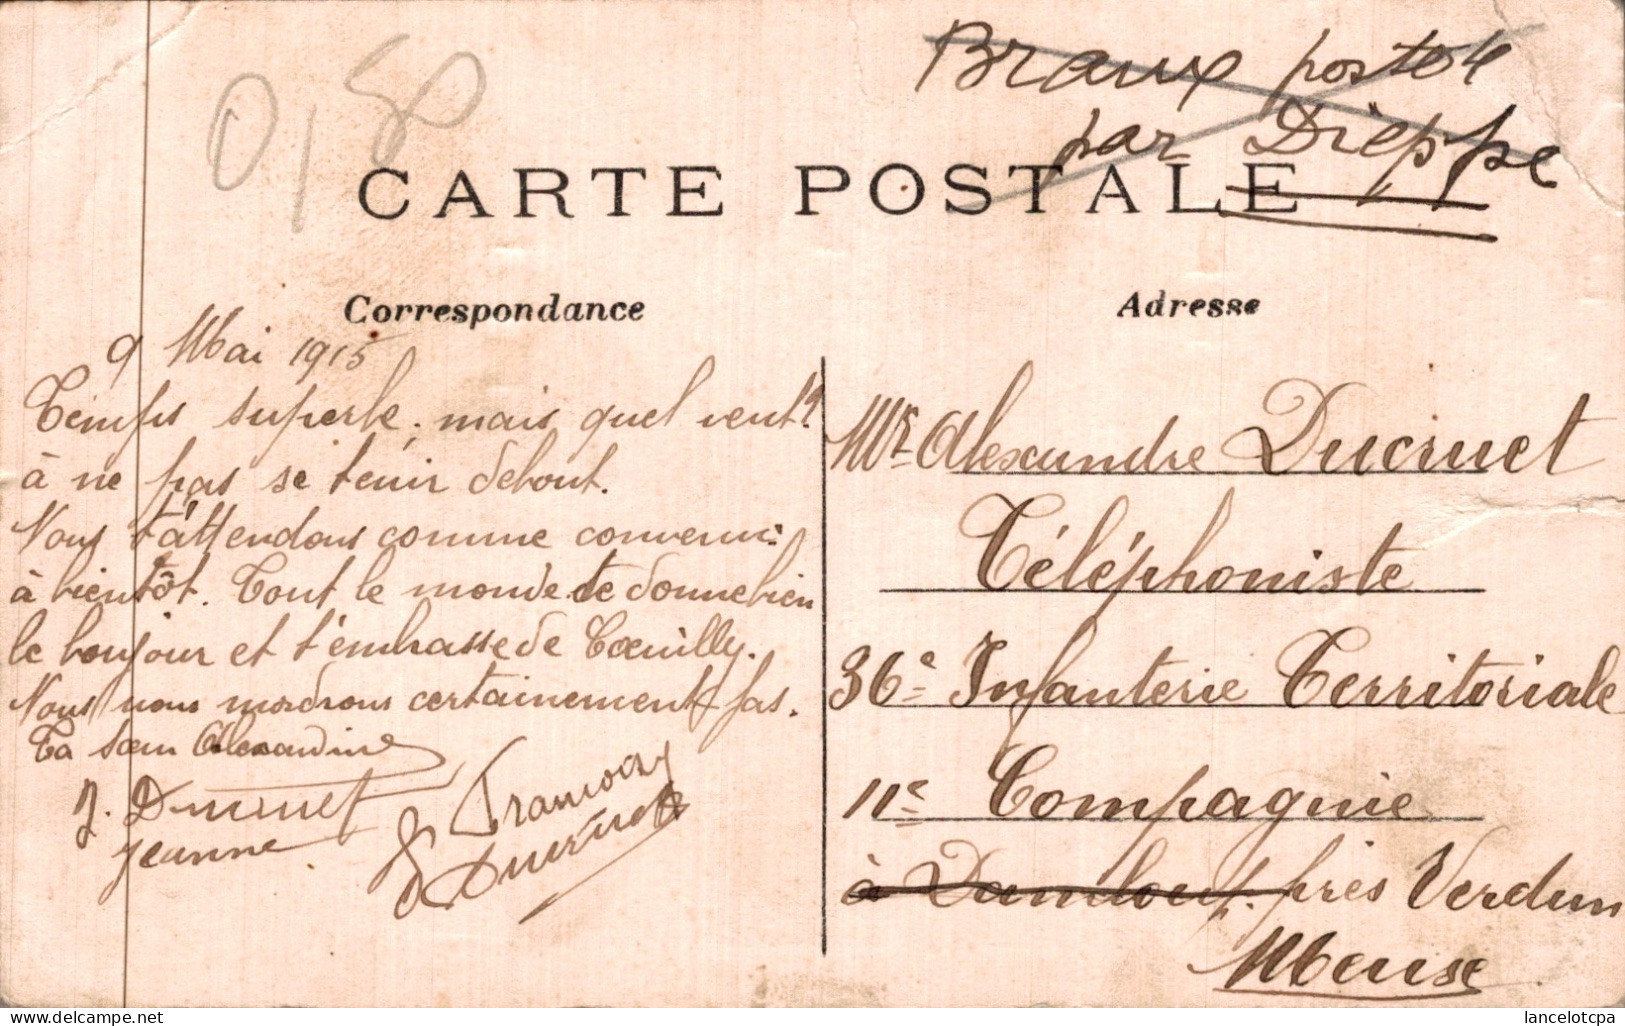 0,80
Braux poste 4
par Dieppe
CARTE POSTALE
Correspondance
9 Mai 1915
Temps superbe, mais quel vent!!
à ne pas se tenir debout.
Nous t'attendons comme convenu:
à bientôt. Tout le monde te donne bien
le bonjour et t'embrasse de Cœuilly.
Nous nous mordrons certainement pas.
Ta sœur Alexandrine
J. Ducruet
Jeanne
Ducruet
Adresse
Mr Alexandre Ducruet
Téléphoniste
36e Infanterie Territoriale
11e Compagnie
à Damloup. près Verdun
Meuse
delcampe.net
lancelotcpa